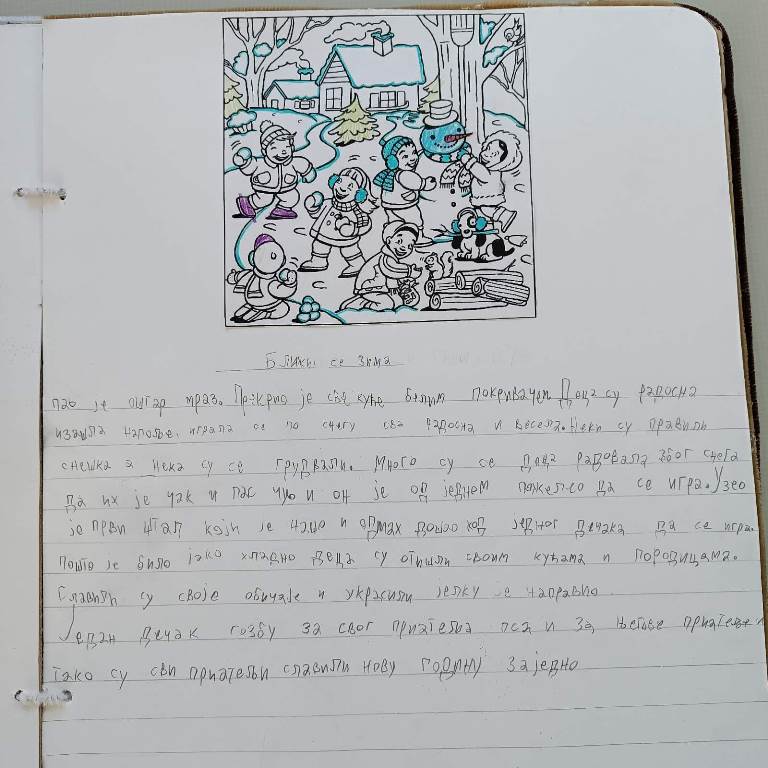 Ближи се зима
пао је оштар мраз. Прекрио је све куће белим покривачем Деца су радосна
изашла напоље. играла се по снегу сва радосна и весела. Неки су правили
снешка а нека су се грудвали. Много су се деца радовала због снега
да их је чак и пас чуо и он је од једном пожелео да се игра. Узео
је први штап који је нашо и одмах дошао код једног дечака да се игра.
пошто је било јако хладно деца су отишли своим кућама и породицама.
Славили су своје обичаје и украсили јелку је направио
Једак дечак гозбу за свог приатеља пса и за његове приатеље и
тако су сви приатељи славили нову годину заједно